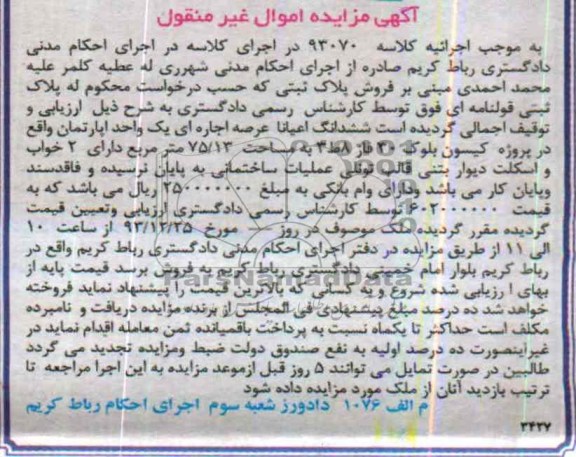 آگهی مزایده اموال غیر منقول
به موجب اجرائیه کلاسه ۹۳۰۷۰ در اجرای کلاسه در اجرای احکام مدنی
دادگستری رباط کریم صادره از اجرای احکام مدنی شهرری له عطیه کلمر علیه
محمد احمدی مبنی بر فروش پلاک ثبتی که حسب درخواست محکوم له پلاک
ثبتی قولنامه ای فوق توسط کارشناس رسمی دادگستری به شرح ذیل ارزیابی و
توقیف اجمالی گردیده است ششدانگ اعیانا عرصه اجاره ای یک واحد اپارتمان واقع
در پروژه کیسون بلوک ۳۰ فاز ۸ط۴ به مساحت ۷۵/۱۳ متر مربع دارای ۲ خواب
و اسکلت دیوار بتنی قالب تونلی عملیات ساختمانی به پایان نرسیده و فاقدسند
وپایان کار می باشد ودارای وام بانکی به مبلغ ۲۵۰۰۰۰۰۰۰ ریال می باشد که به
قیمت ۶۰۲۰۰۰۰۰۰ توسط کارشناس رسمی دادگستری ارزیابی وتعیین قیمت
گردیده مقرر گردیده ملک موصوف در روز مورخ ۹۳/۱۲/۲۵ از ساعت ۱۰
الی ۱۱ از طریق مزایده در دفتر اجرای احکام مدنی دادگستری رباط کریم واقع در
رباط کریم بلوار امام خمینی دادگستری رباط کریم به فروش برسد قیمت پایه از
بهای ا رزیابی شده شروع و به کسانی که بالاترین قیمت را پیشنهاد نماید فروخته
خواهد شد ده درصد مبلغ پیشنهادی فی المجلس از برنده مزایده دریافت و نامبرده
مکلف است حداکثر تا یکماه نسبت به پرداخت باقمیانده ثمن معامله اقدام نماید در
غیراینصورت ده درصد اولیه به نفع صندوق دولت ضبط ومزایده تجدید می گردد
طالبین در صورت تمایل می توانند ۵ روز قبل ازموعد مزایده به این اجرا مراجعه تا
ترتیب بازدید آنان از ملک مورد مزایده داده شود
م الف ۱۰۷۶ دادورز شعبه سوم اجرای احکام رباط کریم
۳۴۲۷
ParsNamadData